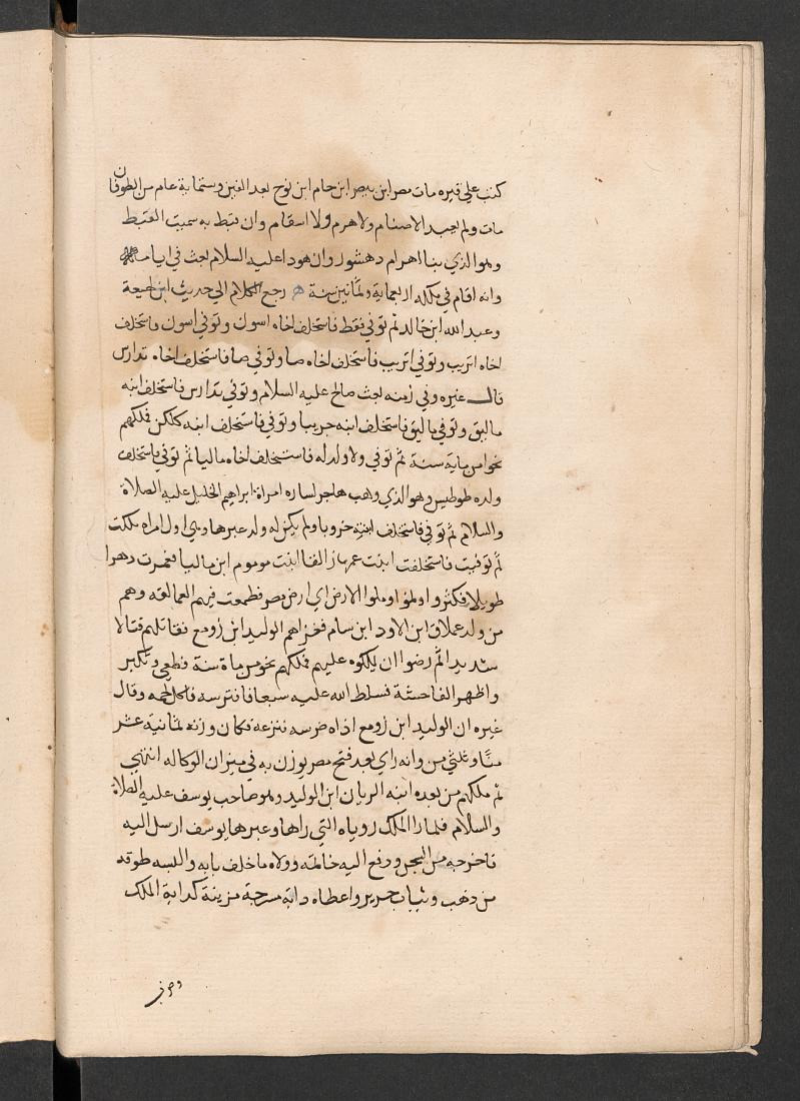 كتب على قبره مات مصر ابن بيصر ابن حام ابن نوح بعد الفين وستماية عام من الطوفان
مات ولم يعبد الاصنام ولا هرم ولا اسقام وان قبط به سميت القبط
وهو الذي بنا اهرام دهشور وان هودا عليه السلام بعث في ايامه
وانه اقام في ملكه اربعماية وثمانين سنة رجع الكلام الي حديث ابن لهيعة
وعبد الله ابن خالد ثم توفي قفط فاستخلف اخاه اسون وتوفي اسون فاستخلف
اخاه اتريب وتوفي اتريب فاستخلف اخاه صا وتوفي صا فاستخلف اخاه تدارس
قال غيره وفي زمنه بعث صالح عليه السلام وتوفي تدارس فاستخلف ابنه
ماليق وتوفي ماليق فاستخلف ابنه حريبا وتوفي فاستخلف ابنه كلكن فملكهم
نحوا من ماية سنة ثم توفي ولا ولد له فاستخلف اخاه ماليا ثم توفي فاستخلف
ولده طوطيس وهو الذي وهب هاجر لساره امراة ابراهيم الخليل عليه الصلاة
والسلام ثم توفي فاستخلف ابنته خروبا ولم يكن له ولد غيرها وهي اول امراه ملكت
ثم توفيت فاستخلفت ابنت عمها زالفا ابنت موموم ابن ماليا فعمرت دهرا
طويلا فكثروا ونموا وملوا الارض اي ارض مصر فطمعت فيهم العمالقه وهم
من ولد عملاق ابن لاود ابن سام فغزاهم الوليد ابن زومع فقاتلهم قتالا
شديدا ثم رضوا ان يملكوه عليهم فملكهم نحو من ماة سنة فطغي وتكبر
واظهر الفاحشة فسلط الله عليه سبعا فافترسه فاكل لحمه وقال
غيره ان الوليد ابن زومع اذاه ضرسه فنزعه فكان وزنه ثمانية عشر
منا وثلثي من وانه راي بعد فتح مصر يوزن به في ميزان الوكاله انتهي
ثم ملكهم من بعده ابنه الريان ابن الوليد وهو صاحب يوسف عليه الصلاة
والسلام فلما را الملك روياه التي راها وعبرها يوسف ارسل اليه
فاخرجه من السجن ودفع اليه خاتمه وولاه ما خلف بابه والبسه طوقه
من ذهب وثياب حرير واعطاه دابة مسرجة مزينة كدابة الملك